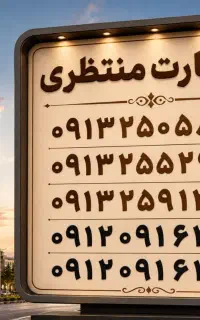 ارت منتظری
۰۹۱۳۲۵۰۵۸
۰۹۱۳۲۵۵۲۹
۰۹۱۳۲۵۹۱۲
۰۹۱۲۰۹۱۶۲
۰۹۱۲۰۹۱۶۲